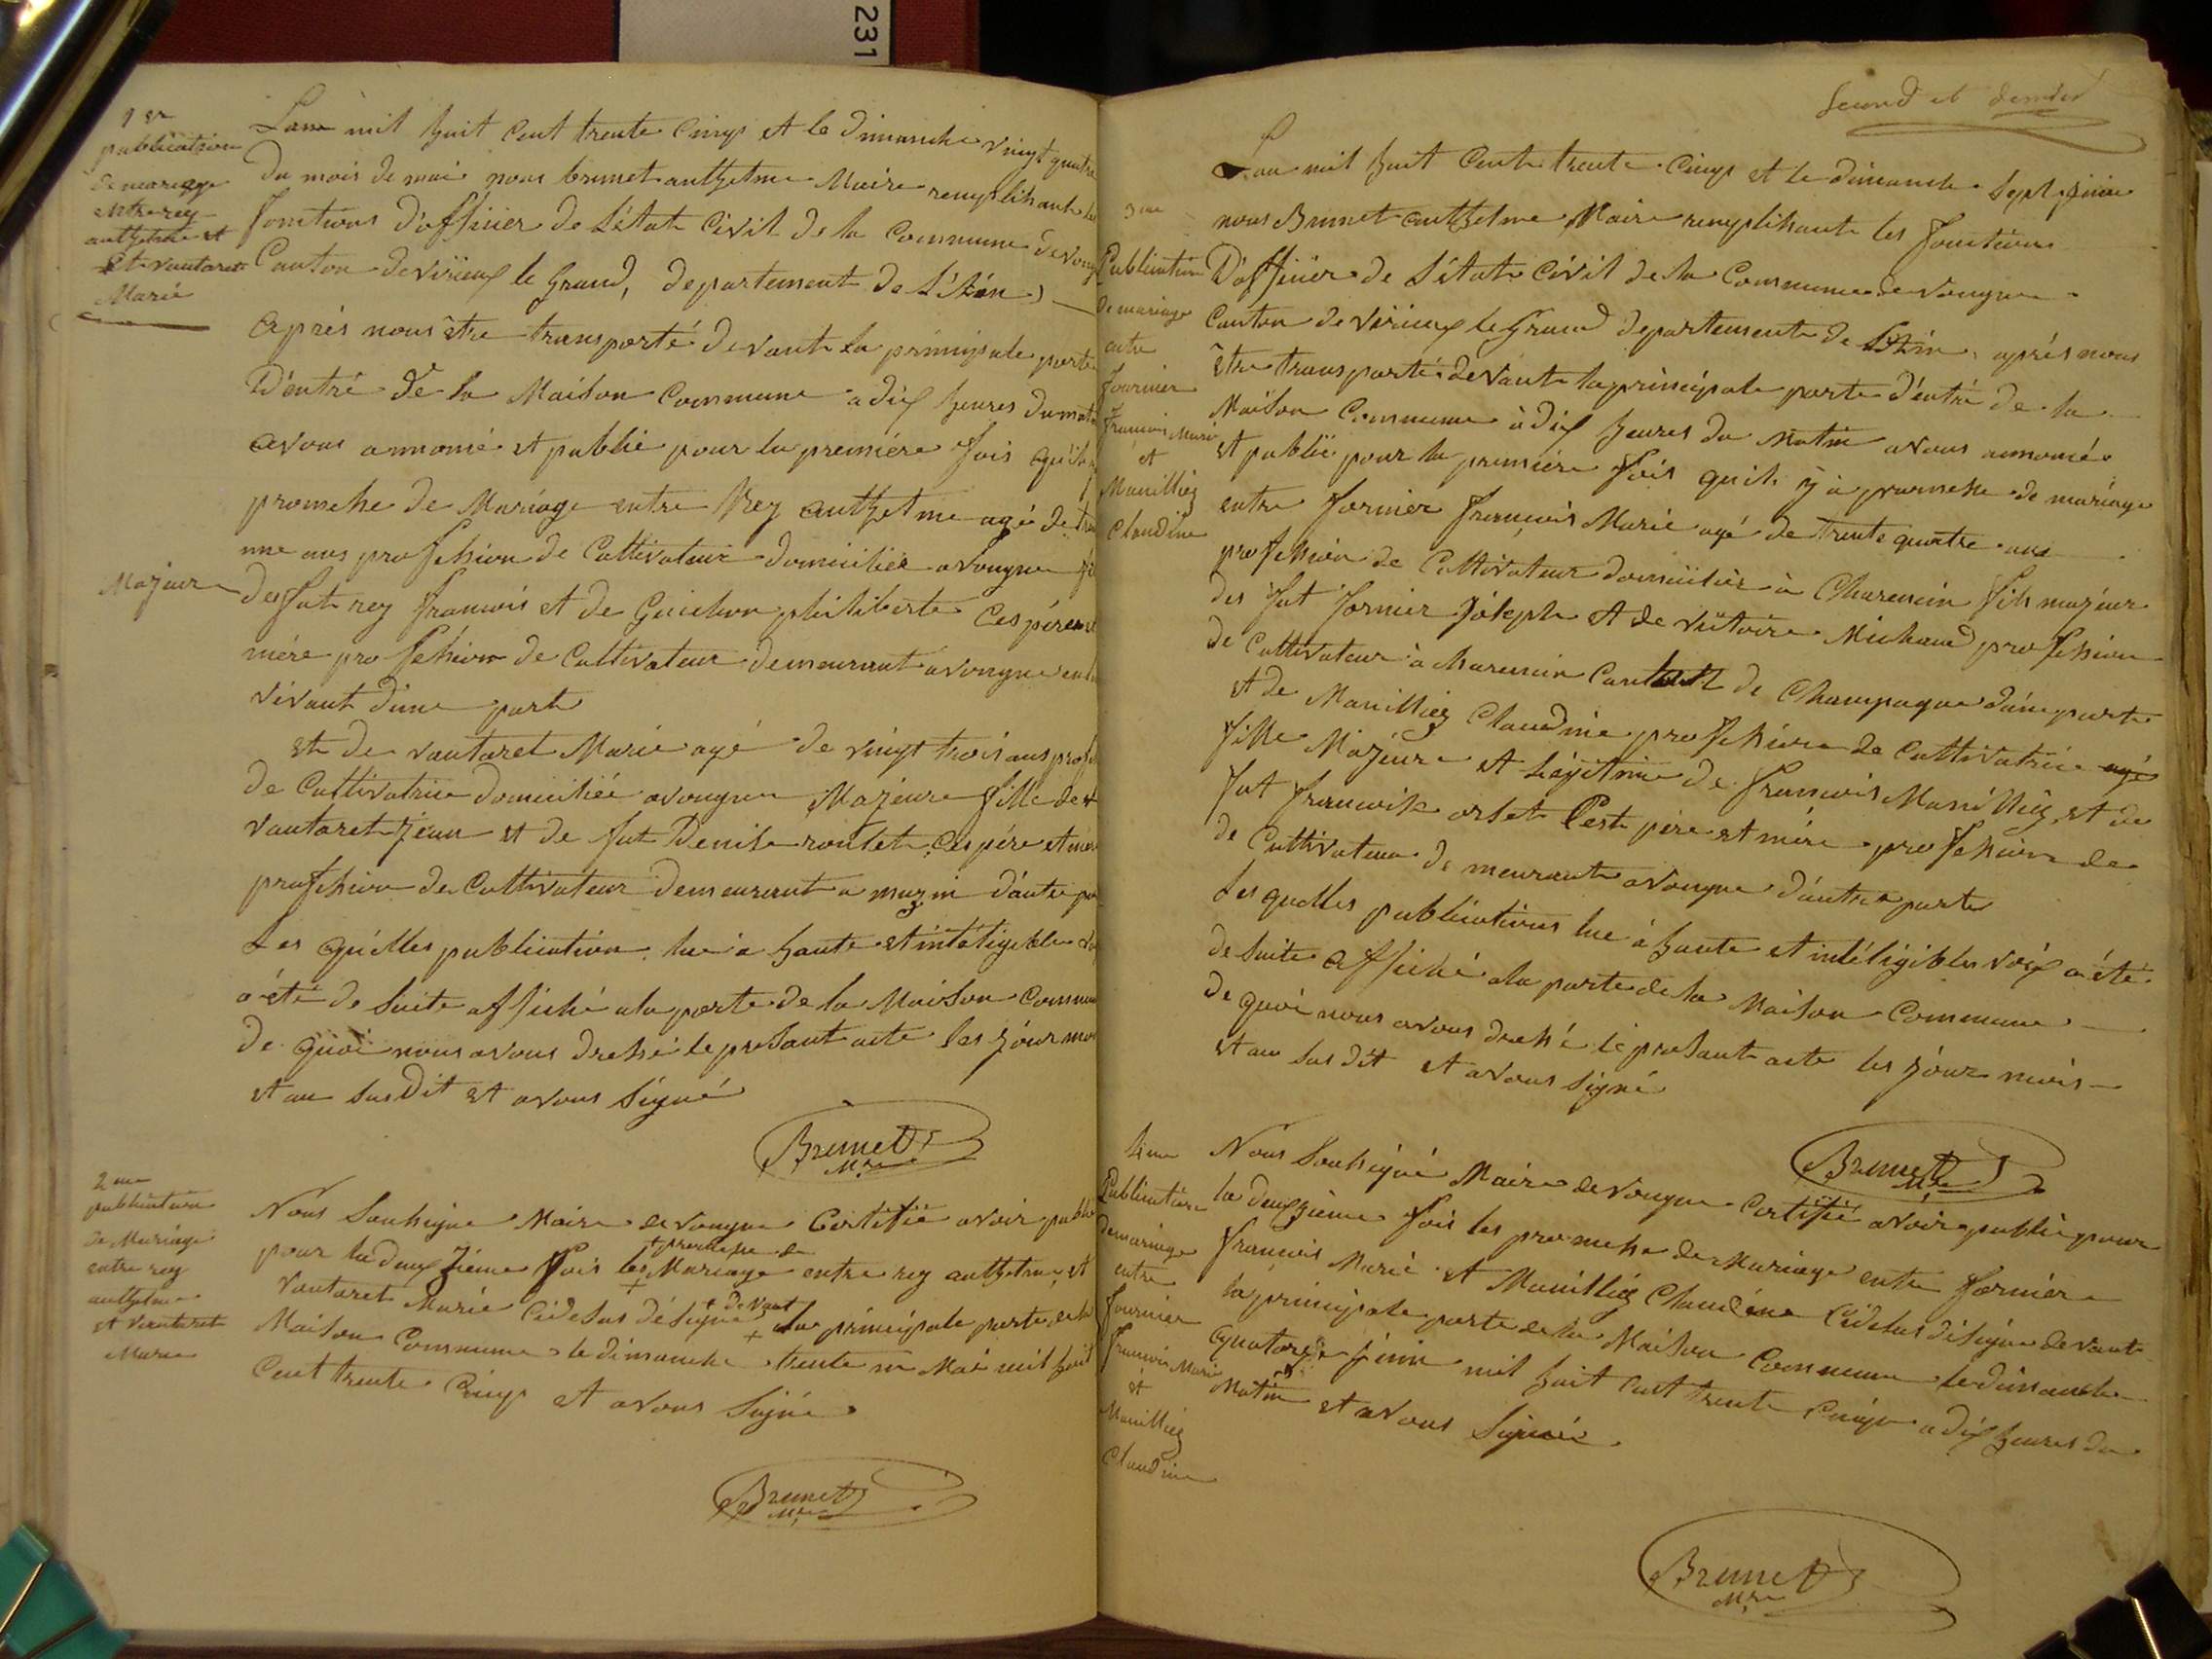 231
1er
publication
de mariage
entre rey
anthelme et
et vautaret
Marie
Lan mil huit cent trente cinq et le dimanche vingt quatre
du mois de mai nous brunet anthelme Maire remplissant les
fonctions d'officier de L'état civil de la commune de vong
Canton de virieux le Grand, departement de L'Ain)
après nous être transporté devant la principale porte
D'entré de la Maison commune a dix heures du mat
avons annoncé et publié pour la première fois qu'il y
promesse de Mariage entre Rey anthelme agé de tren
une ans profession de Cultivateur domicilié a vongne fils
Majeur
de fut rey francois et de Guichon philiberte Ces père et
mère profession de Cultivateur demeurant a vongne en
vivant d'une part
et de vautaret Marie agé de vingt trois ans profes
de Cultivatrice domicilié a vongne Majeure fille de
vautaret Jean et de fut Denise roulet, ces père et mère
profession de Cultivateur demeurant a muzin d'autre pa
Les quelles publication lue a haute et inteligible
a été de suite affiché a la porte de la Maison Commu
De quoi nous avons dressé le presant acte les jour mois
et an susdit et avons Signé
Brunet
Mre
2me
publication
de Mariage
entre rey
anthelme
et vautaret
Marie
Nous Soussigné Maire de vongne Certifié avoir publié
pour la deuxzième fois les + promesse de Mariage entre rey anthelme et
Vautaret Marie Cidesus désigné + devant la principale porte de la
Maison Commune le dimanche trente un Mai mil huit
Cent trente Cinq et avons Signé
Brunet
Mre
Second et dernier
3me
Publication
de mariage
entre
fournier
François Marie
et
Manilliez
Claudine
Lan mil huit Cent trente Cinq et le dimanche Sept juin
nous Brunet anthelme Maire remplissant les fonctions
D'officier de L'état Civil de la Commune de vongne
Canton de virieux le Grand departement de L'Ain, après nous
être transporté devant la principale porte d'entré de la
Maison Commune à dix heures du Matin avons annoncé
et publié pour la première fois qu'il y a promesse de mariage
entre fornier françois Marie agé de trente quatre ans
profession de Cultivateur domicilié à Charencin fils majeur
des fut fornier Joseph et de victoire Michaud profession
de Cultivateur à Charencin Canton de Champagne d'une part
et de Manilliez Claudine profession de Cultivatrice agé
fille Majeure et Légitime de francois Manilliez et de
fut francoise orset Cest père et mère profession de
de Cultivateur demeurant a vongne d'autre part
Les quelles publications lue à haute et inteligibles voix a été
de Suite affiché a la porte de la Maison Commune
de quoi nous avons dressé le presant acte les jour mois
et an susdit et avons signé
Brunet
Mre
4me
Publication
de mariage
entre
fournier
francois Marie
et
Manilliez
Claudine
Nous Soussigné Maire de vongne Certifié avoir publié pour
la deuxzième fois les promesse de Mariage entre fornier
francois Marie et Manilliez Claudine Cidesus désigné devant
la principale porte de la Maison Commune le dimanche
Quatorze juin mil huit cent trente Cinq a dix heures du
Matin et avons Signé
Brunet
Mre